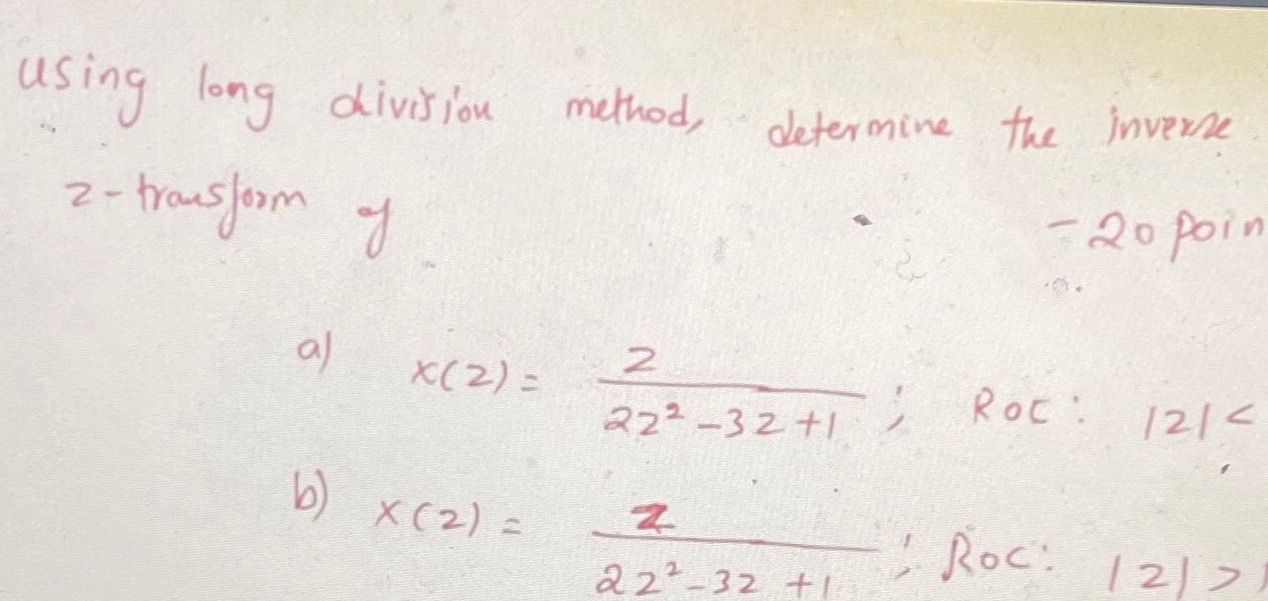 using long division method, determine the inverse
z-transform of
-20 poin
a) x(z) = z / 2z² - 3z + 1 ; ROC: |z| <
b) x(z) = z / 2z² - 3z + 1 ; ROC: |z| > 1